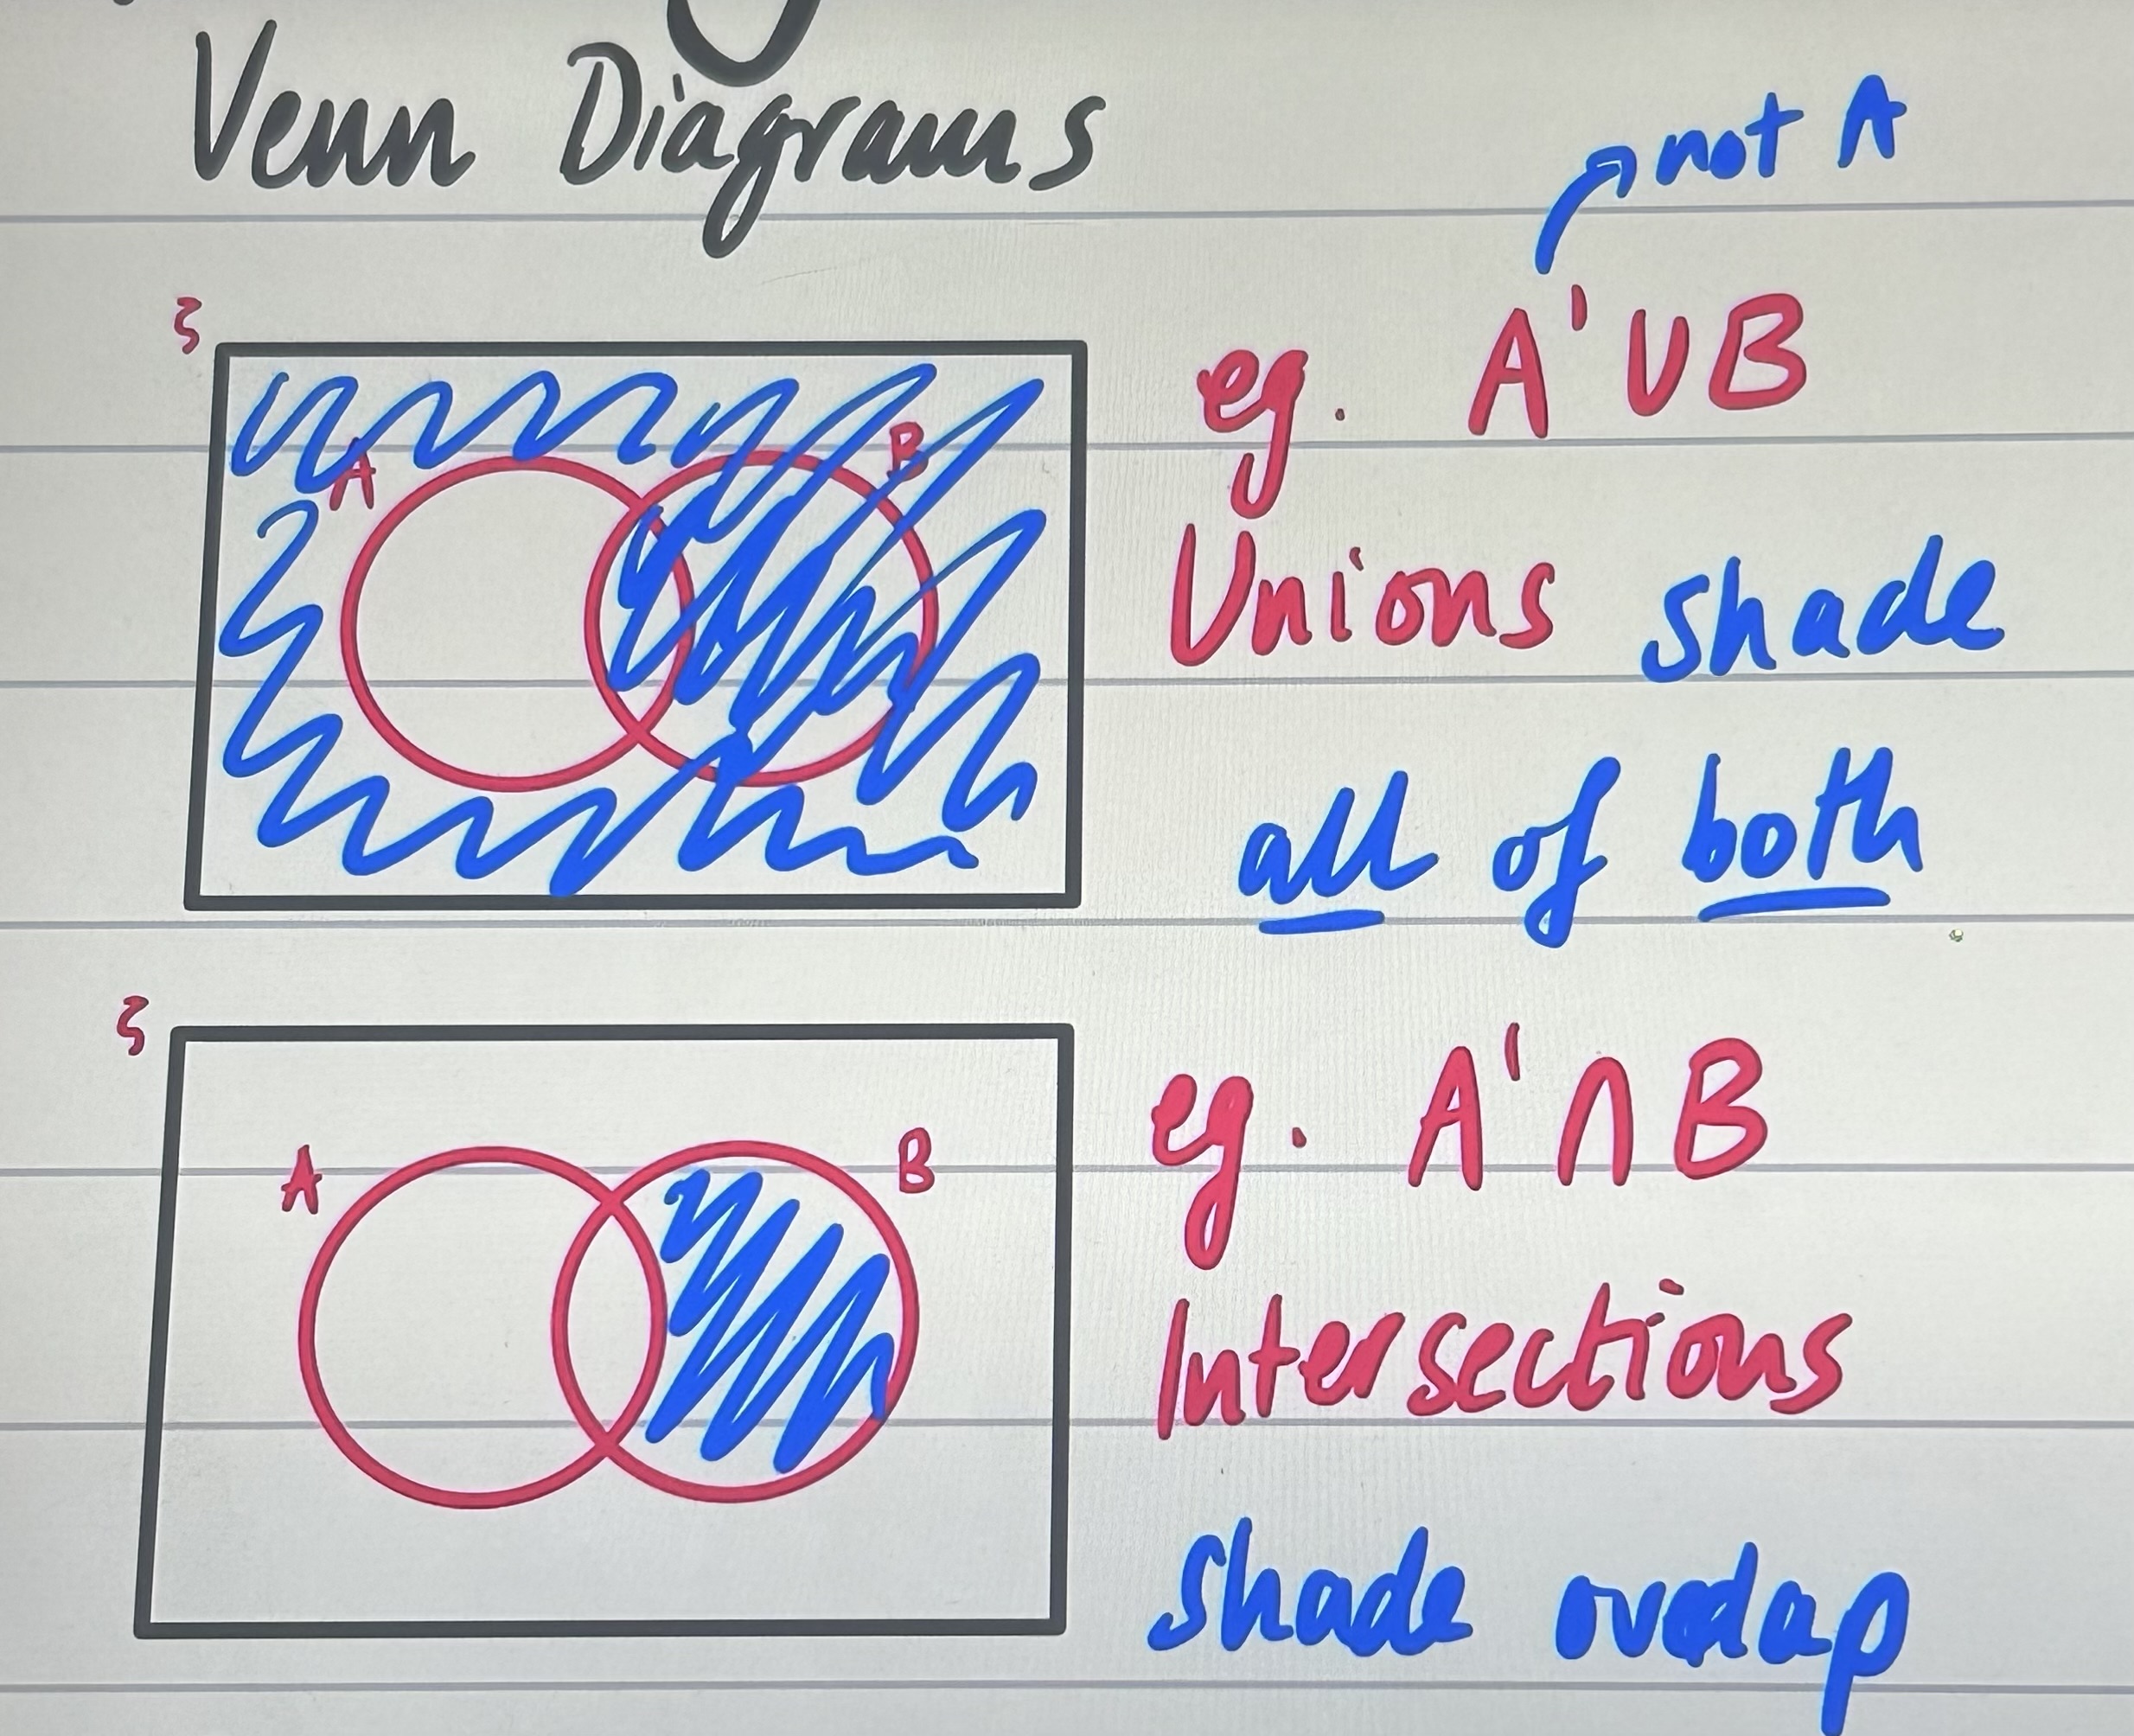 Venn Diagrams
not A
ξ
A
B
eg. A' ∪ B
Unions shade
all of both
ξ
A
B
eg. A' ∩ B
Intersections
shade overlap